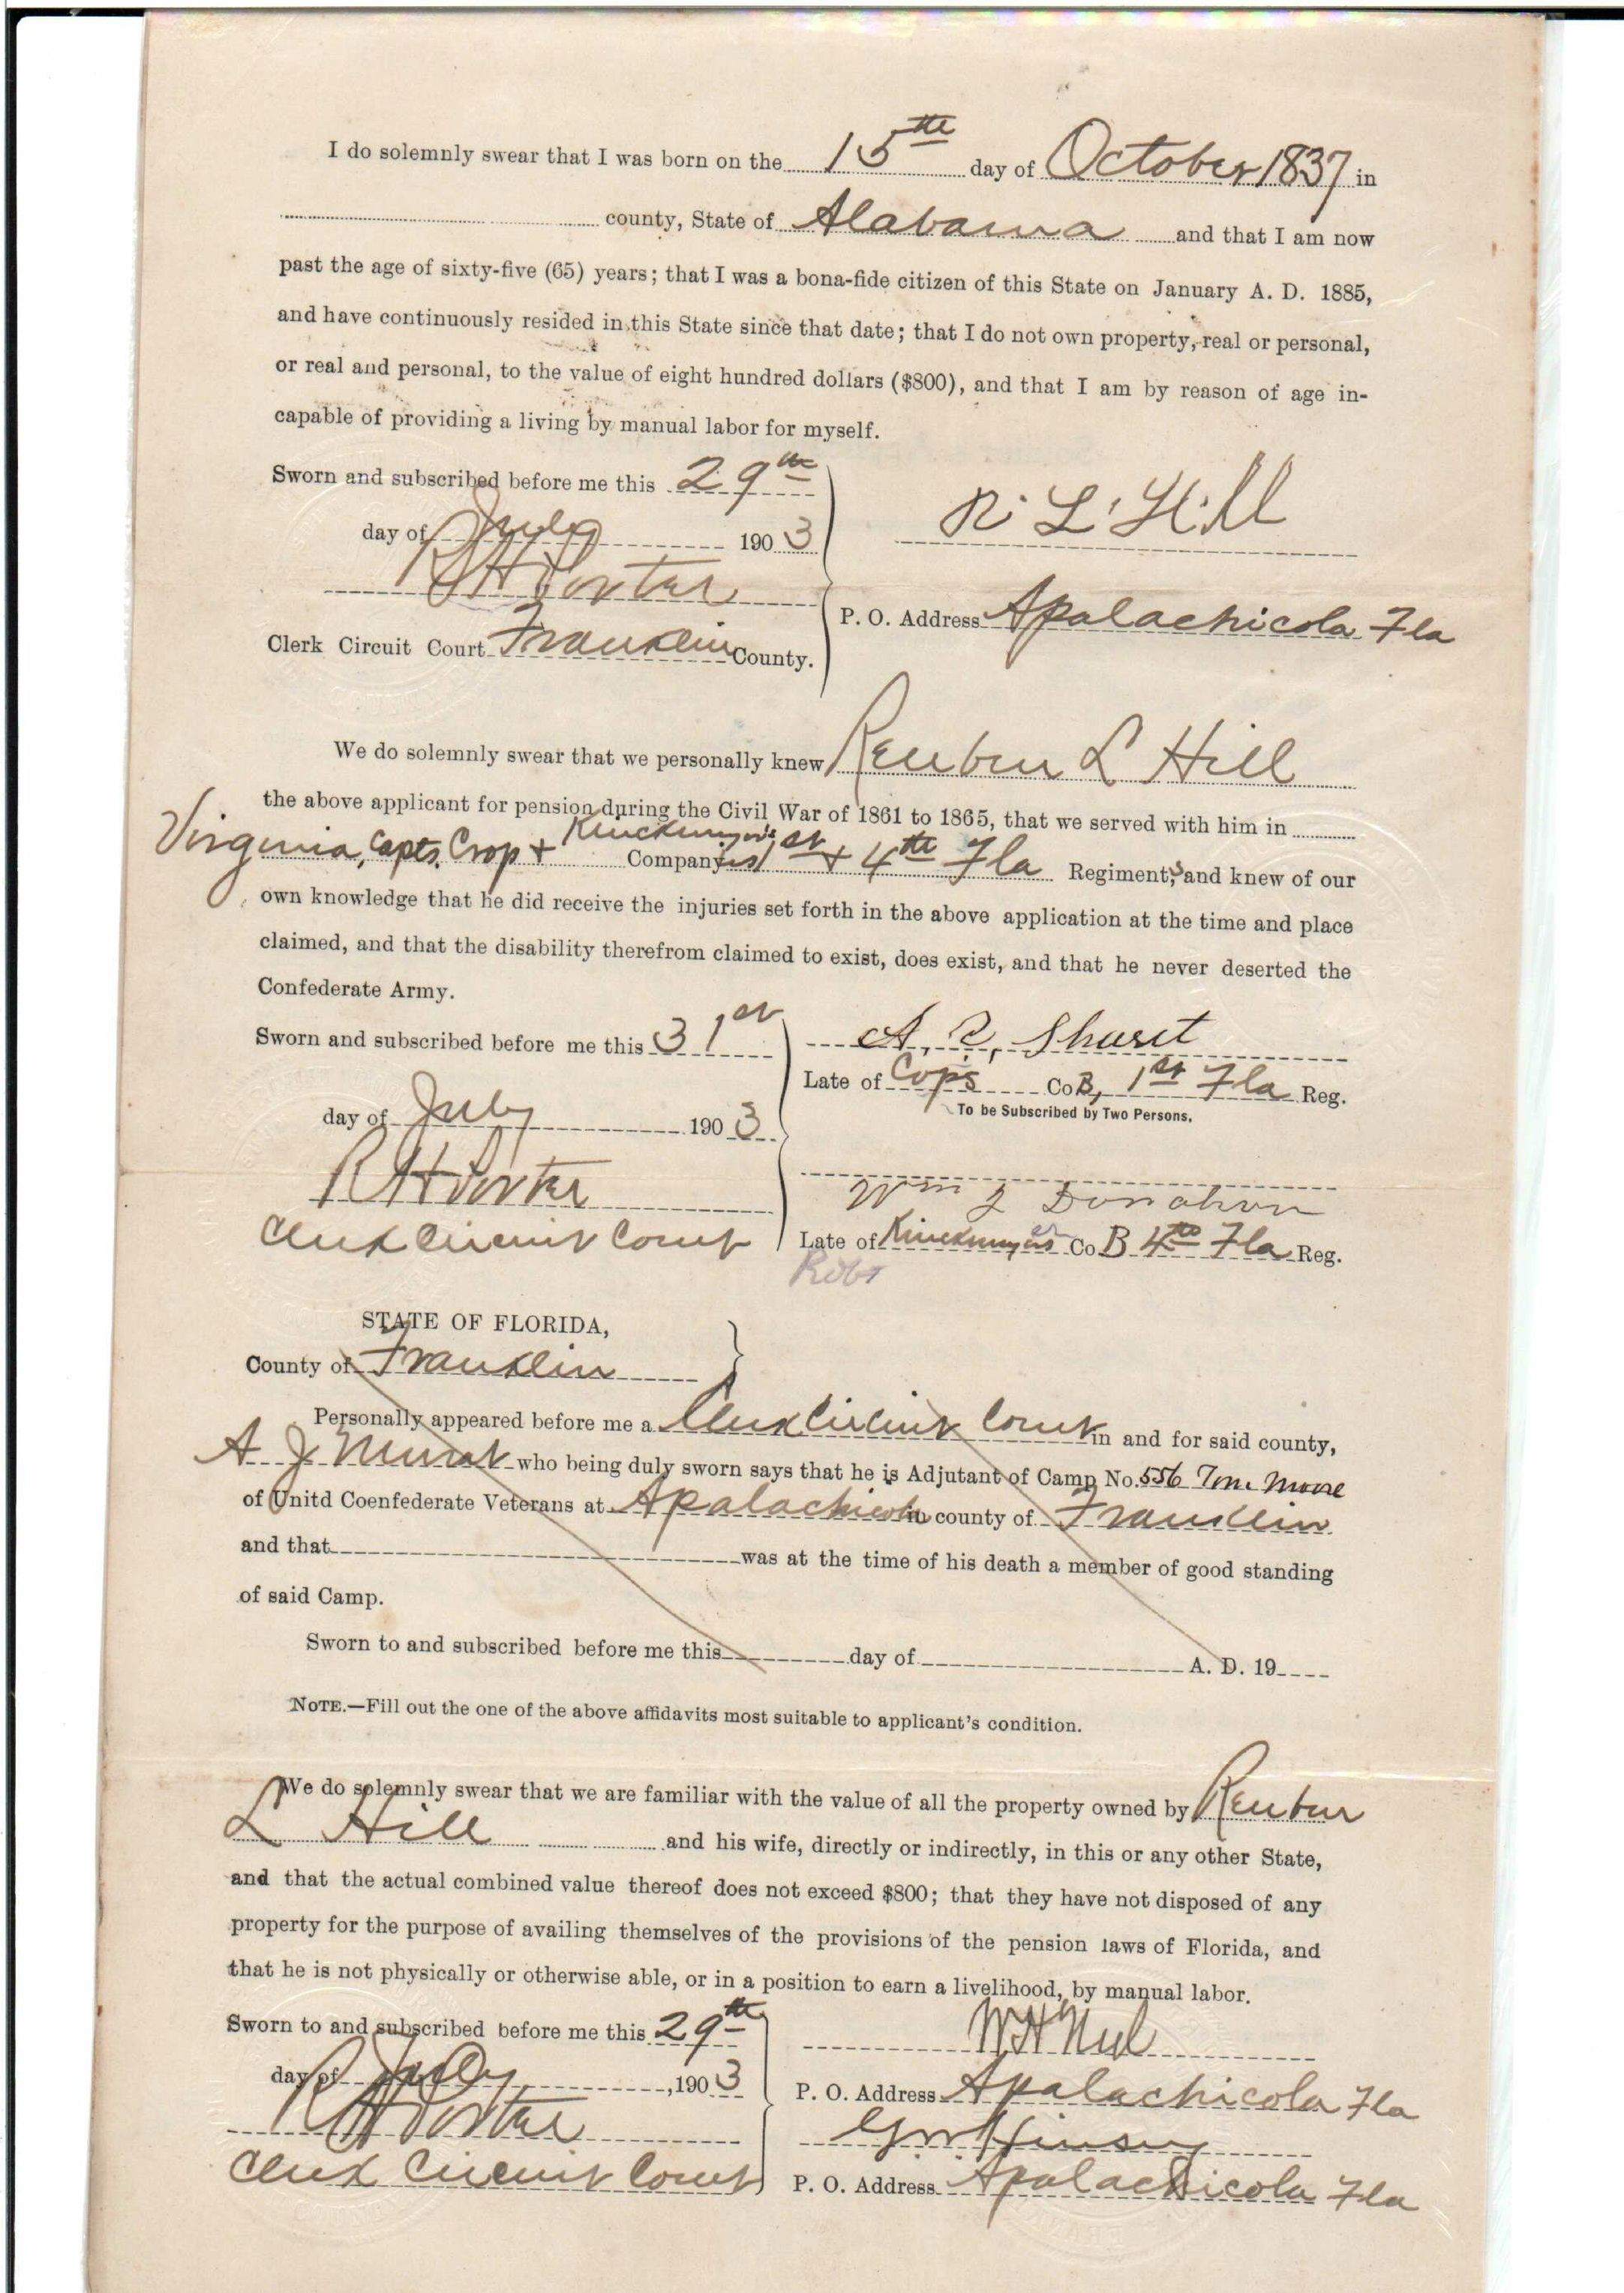 I do solemnly swear that I was born on the 15th day of October 1837 in
county, State of Alabama and that I am now
past the age of sixty-five (65) years; that I was a bona-fide citizen of this State on January A. D. 1885,
and have continuously resided in this State since that date; that I do not own property, real or personal,
or real and personal, to the value of eight hundred dollars ($800), and that I am by reason of age in-
capable of providing a living by manual labor for myself.
Sworn and subscribed before me this 29th
day of July 1903
R H Porter
Clerk Circuit Court Franklin County.
R. L. Hill
P. O. Address Apalachicola Fla
We do solemnly swear that we personally knew Reuben L Hill
the above applicant for pension during the Civil War of 1861 to 1865, that we served with him in
Virginia, Capts. Crop + Company 1st + 4th Fla Regiments, and knew of our
own knowledge that he did receive the injuries set forth in the above application at the time and place
claimed, and that the disability therefrom claimed to exist, does exist, and that he never deserted the
Confederate Army.
Sworn and subscribed before me this 31st
day of July 1903
R H Porter
Clerk Circuit Court
A.
Late of Co B, 1st Fla Reg.
To be Subscribed by Two Persons.
Wm J
Late of Co B 4th Fla Reg.
Robt
STATE OF FLORIDA,
County of Franklin
Personally appeared before me a Clerk Circuit Court in and for said county,
A J Murat who being duly sworn says that he is Adjutant of Camp No. 556 Tom. Moore
of Unitd Coenfederate Veterans at Apalachicola in county of Franklin
and that was at the time of his death a member of good standing
of said Camp.
Sworn to and subscribed before me this day of A. D. 19
NOTE.—Fill out the one of the above affidavits most suitable to applicant's condition.
We do solemnly swear that we are familiar with the value of all the property owned by Reuben
L Hill and his wife, directly or indirectly, in this or any other State,
and that the actual combined value thereof does not exceed $800; that they have not disposed of any
property for the purpose of availing themselves of the provisions of the pension laws of Florida, and
that he is not physically or otherwise able, or in a position to earn a livelihood, by manual labor.
Sworn to and subscribed before me this 29th
day of July, 1903
R H Porter
Clerk Circuit Court
W H Neel
P. O. Address Apalachicola Fla
P. O. Address Apalachicola Fla